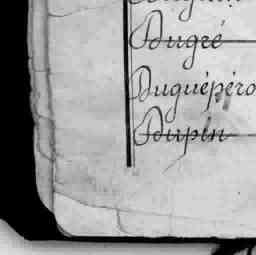 Dugré
Duguépéro
Dupin